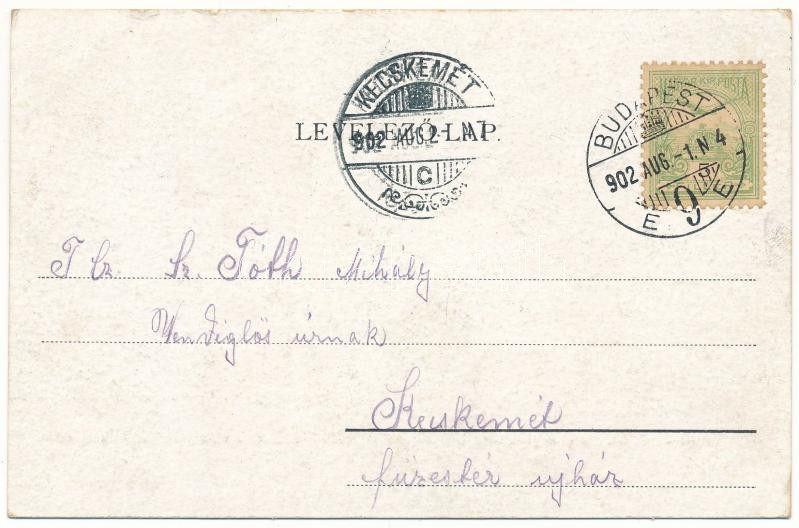 KECSKEMÉT
902 AUG.2
C
LEVELEZŐ-LAP.
MAGYAR KIR. POSTA
BUDAPEST
902 AUG.-1.N4
9
T Cz. Sz. Tóth Mihály
Vendiglős úrnak
Kecskemét
füzestér ujház